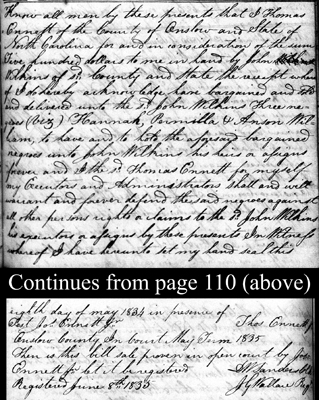 Know all men by these presents that I Thomas
Ennett of the County of Onslow and State of
North Carolina for and in consideration of the sum
Five hundred dollars to me in hand by John
Wilkins of sd. County and State the receipt where
of I do hereby acknowledge have bargained and
and delivered unto the sd. John Wilkins Three ne
groes (viz) Hannah, Parmilla & Anson Wil
ham, to have and to hold the aforesaid bargained
negroes unto John Wilkins his heirs & assigns
forever and I the sd. Thomas Ennett for myself
my Executors and Administrators shall and will
warrant and forever defend the said negroes against
all other persons rights or claims to the sd John Wilkins
his executors & assigns by these presents In Witness
whereof I have hereunto set my hand seal this
Continues from page 110 (above)
eighth day of may 1834 in presence of
Test Jos. Ennett Jr Thos. Ennett
Onslow County In Court May Term 1835
Then is this bill sale proven in open court by Jos
Ennett Jr let it be registered
Registered June 8th 1835